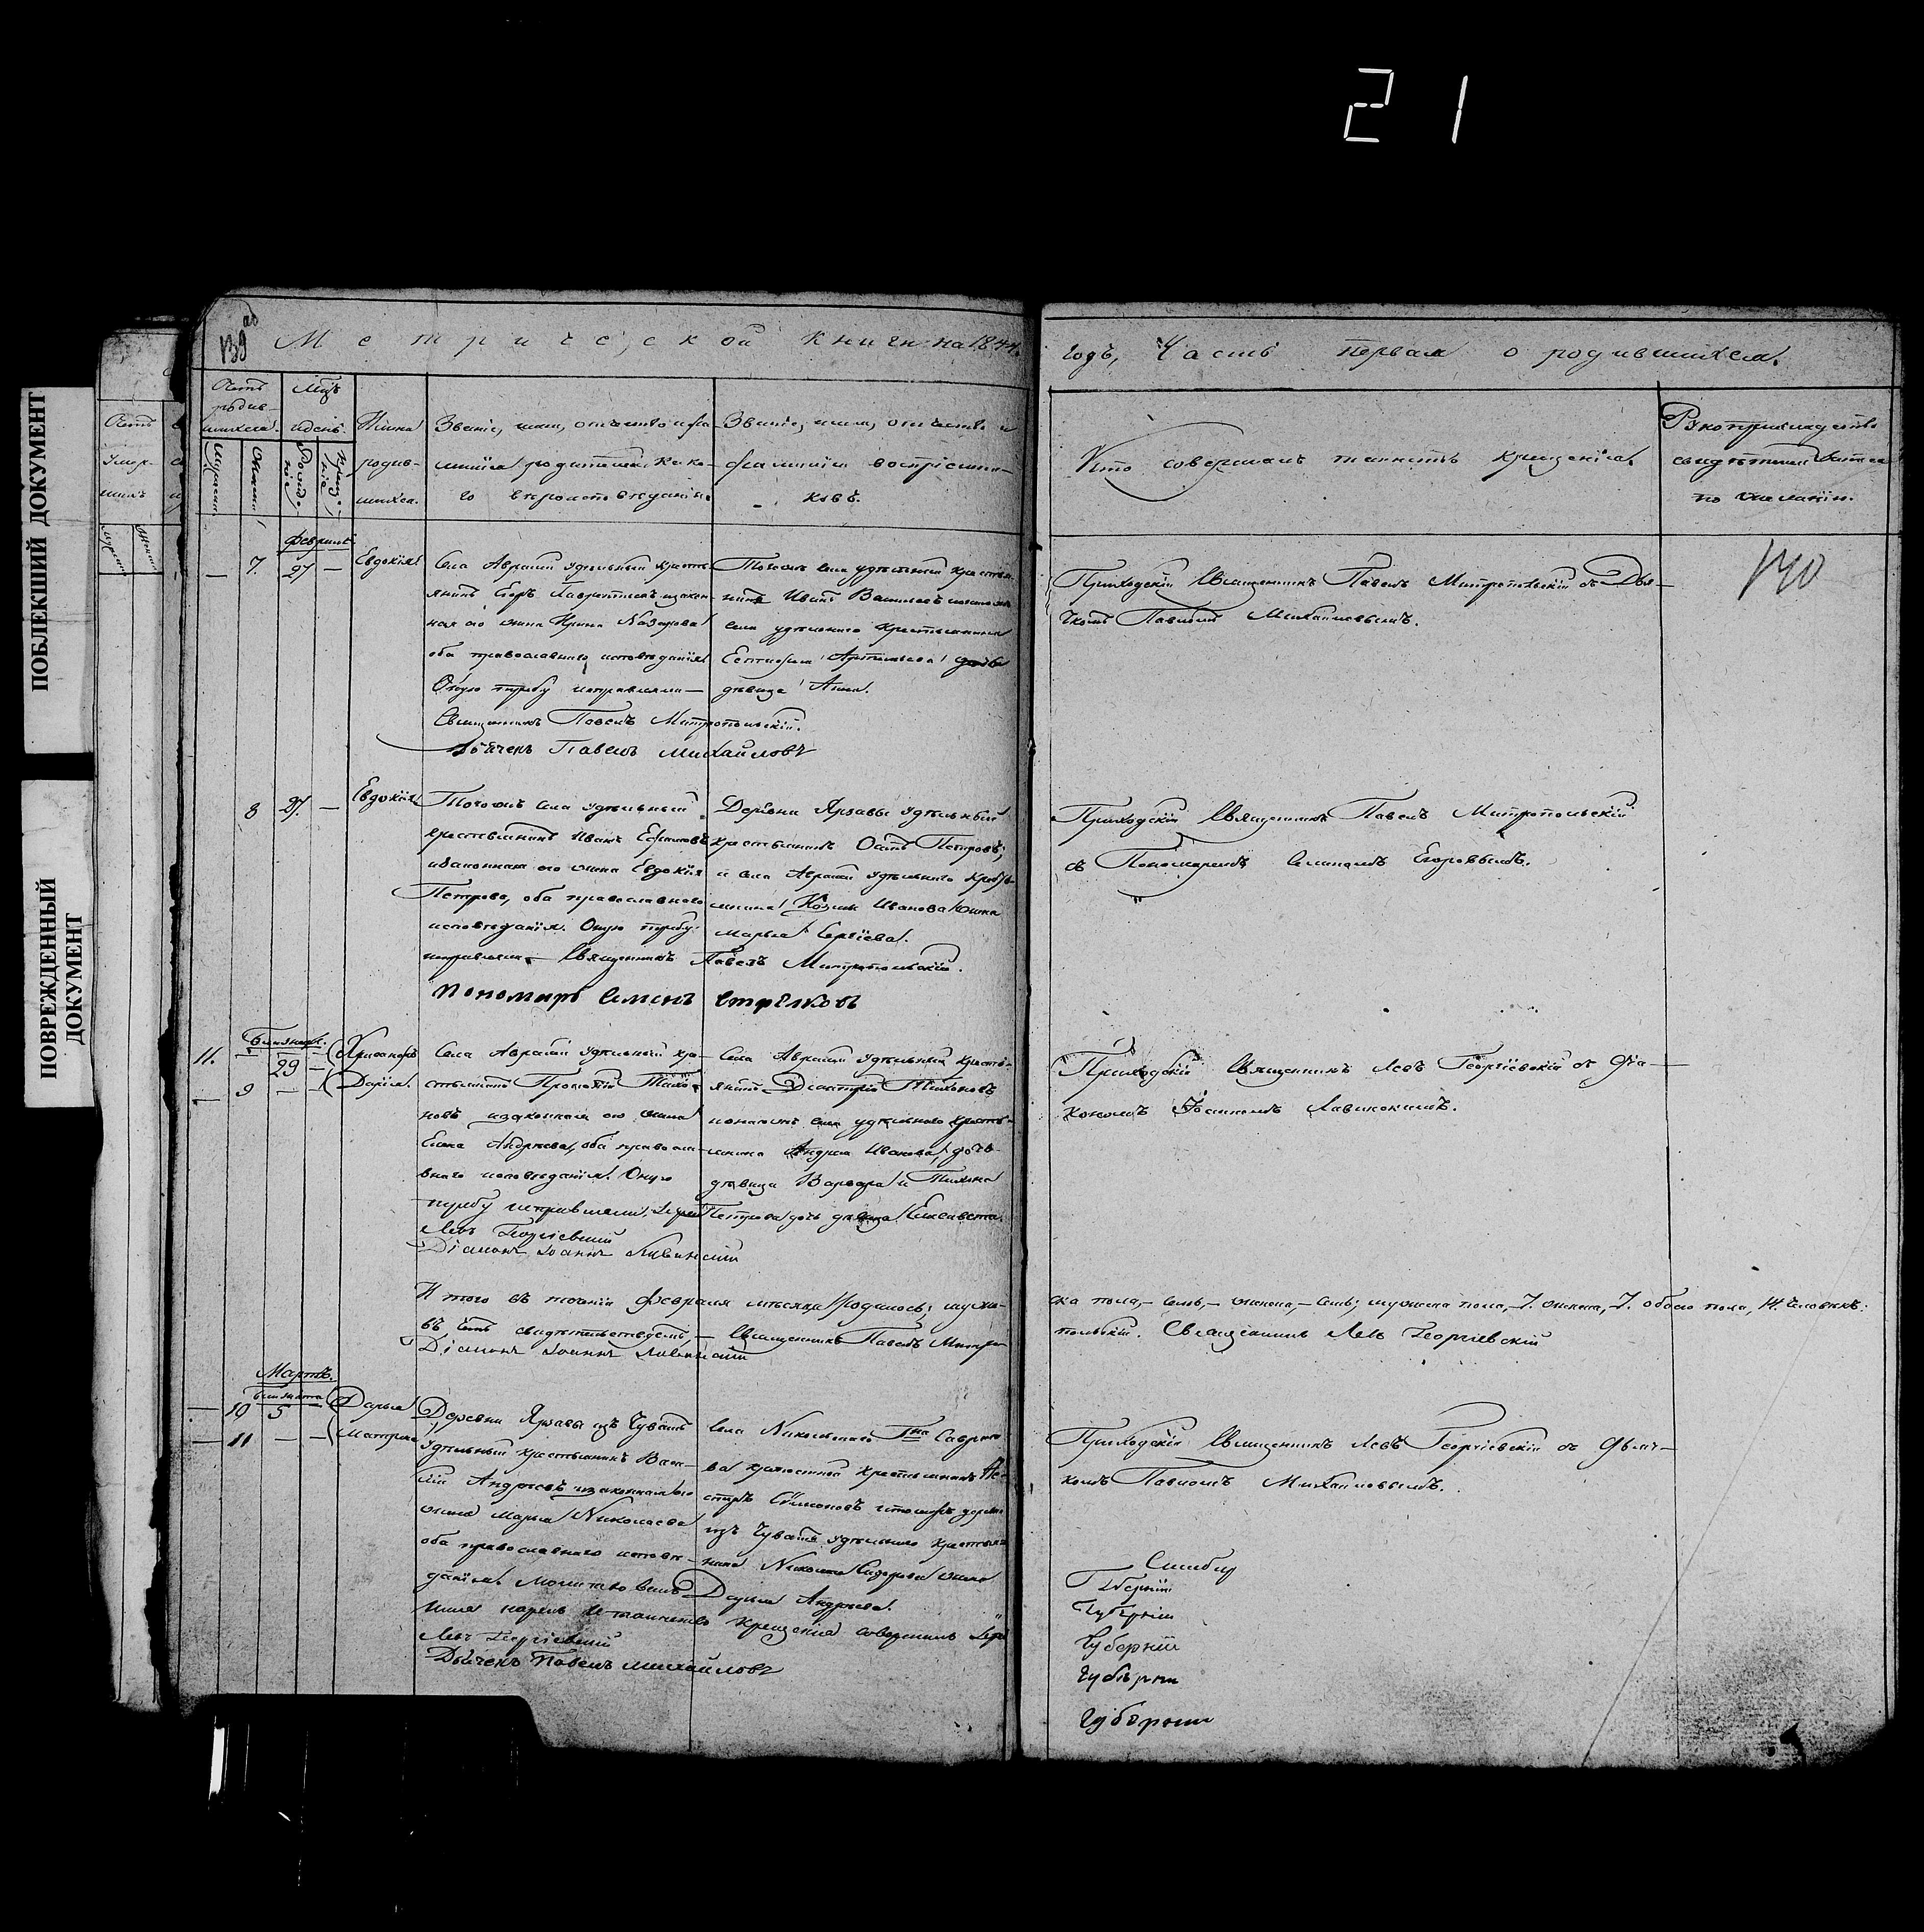 21
ПОБЛЕКШИЙ ДОКУМЕНТ
ПОВРЕЖДЕННЫЙ
ДОКУМЕНТ
139 об
Метрической книги на 1844
годъ, Часть первая о родившихся.
Мцъ
и день.
Имена
родив-
шихся.
Званіе, имя, отчество и фа-
милія родителей, и како-
го вѣроисповѣданія.
Званіе, имя, отчество и
фамилія воспріемни-
ковъ.
Кто совершалъ таинство крещенія.
Рукоприкладство
свидѣтелей записи
по желанію.
140
Февраль
7. 27 — Евдокія
Села Аврали удѣльный кресть-
янинъ Егоръ Лаврентьевъ и закон-
ная его жена Ирина Назарова
оба православнаго исповѣданія
Оную требу исправляли —
Священникъ Павелъ Митропольскій.
Дьячекъ Павелъ Михайловъ
Тогожъ села удѣльный крестья-
нинъ Иванъ Васильевъ и тогожъ
села удѣльнаго крестьянина
дѣвица Анна.
Приходскій Священникъ Павелъ Митропольскій съ Дья-
чкомъ Павломъ Михайловымъ.
8 27. — Евдокія
Тогожъ села удѣльный
крестьянинъ Иванъ Ефимовъ
и законная его жена Евдокія
Петрова, оба православнаго
исповѣданія. Оную требу
исправляли — Священникъ Павелъ Митропольскій.
Пономарь Семенъ Стрелковъ
Деревни Ярзавы удѣльный
крестьянинъ Осипъ Петровъ,
и села Аврали удѣльнаго крестья-
нина Козмы Иванова жена
Марья Сергіева.
Приходскій Священникъ Павелъ Митропольскій
съ Пономаремъ Семеномъ Егоровымъ.
Близнецы.
11. — 29 — Хрисанфъ
9 — — Дарія.
Села Аврали удѣльный кре-
стьянинъ Прокофій Тихо-
новъ и законная его жена
Елена Андреева, оба правосла-
внаго исповѣданія. Оную
требу исправляли: Іерей
Левъ Георгіевскій
Діаконъ Іоаннъ Лавинскій
Села Аврали удѣльный кресть-
янинъ Дмитрій Тихоновъ
и тогожъ села удѣльнаго кресть-
янина Андрея Иванова дочь
дѣвица Варвара и Тихона
Петрова дочь дѣвица Елисавета.
Приходскій Священникъ Левъ Георгіевскій съ Діа-
кономъ Іоанномъ Лавинскимъ.
Итого въ теченіи февраля мѣсяца родилось: муже-
ска пола, — семь, — женска, — семь; мужеска пола, — 7. женска, 7. обоего пола, 14. человѣкъ:
въ чемъ свидѣтельствуемъ, — Священникъ Павелъ Митро-
польскій. Священникъ Левъ Георгіевскій
Діаконъ Іоаннъ Лавинскій
Мартъ.
Близнята
10 5 — Дарья
11 — — Матрена
Деревни Ярзавы изъ Чувашъ
удѣльный крестьянинъ Васи-
лій Андреевъ и законная его
жена Марья Николаева
оба православнаго исповѣ-
данія. Молитвовалъ
имя нарекъ и таинство крещенія совершилъ Іерей
Левъ Георгіевскій
Дьячекъ Павелъ Михайловъ
Села Никольскаго Гна Саврасо-
ва крѣпостной крестьянинъ Не-
стеръ Симоновъ и тойжъ деревни
изъ Чувашъ удѣльнаго крестья-
нина Николая Сидорова жена
Дарья Андреева.
Приходскій Священникъ Левъ Георгіевскій съ Дьяч-
комъ Павломъ Михайловымъ.
Симбир
Губерніи
Губерніи
Губерніи
Губѣрни
Губерніи